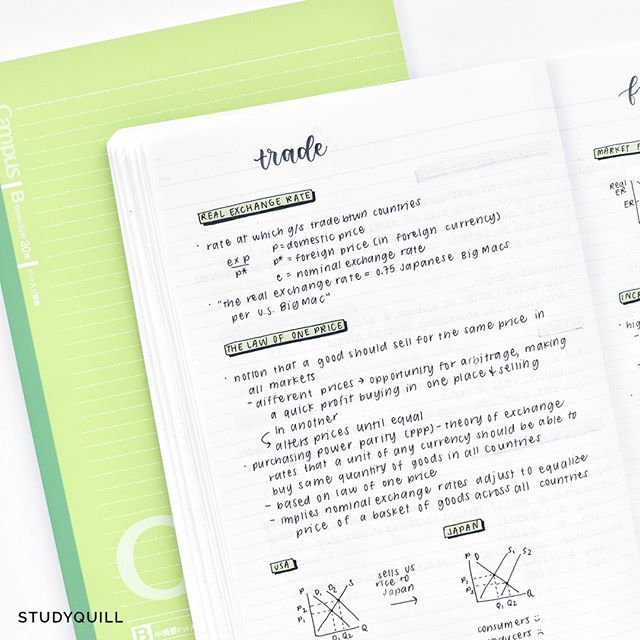 trade
REAL EXCHANGE RATE
· rate at which g/s trade btwn countries
e x p
p*
p = domestic price
p* = foreign price (in foreign currency)
e = nominal exchange rate
· "the real exchange rate = 0.75 Japanese Big Macs
per U.S. Big Mac"
THE LAW OF ONE PRICE
· notion that a good should sell for the same price in
all markets
- different prices → opportunity for arbitrage, making
a quick profit buying in one place & selling
in another
↳ alters prices until equal
· purchasing power parity (PPP) - theory of exchange
rates that a unit of any currency should be able to
buy same quantity of goods in all countries
- based on law of one price
- implies nominal exchange rates adjust to equalize
price of a basket of goods across all countries
USA
P D₁ D₂ S
P₂
P₁
Q₁ Q₂ Q
sells US
rice to
Japan
→
JAPAN
P D S₁ S₂
P₁
P₂
Q₁ Q₂ Q
consumers
MARKET
Real
ER
ER
Campus
B
STUDYQUILL